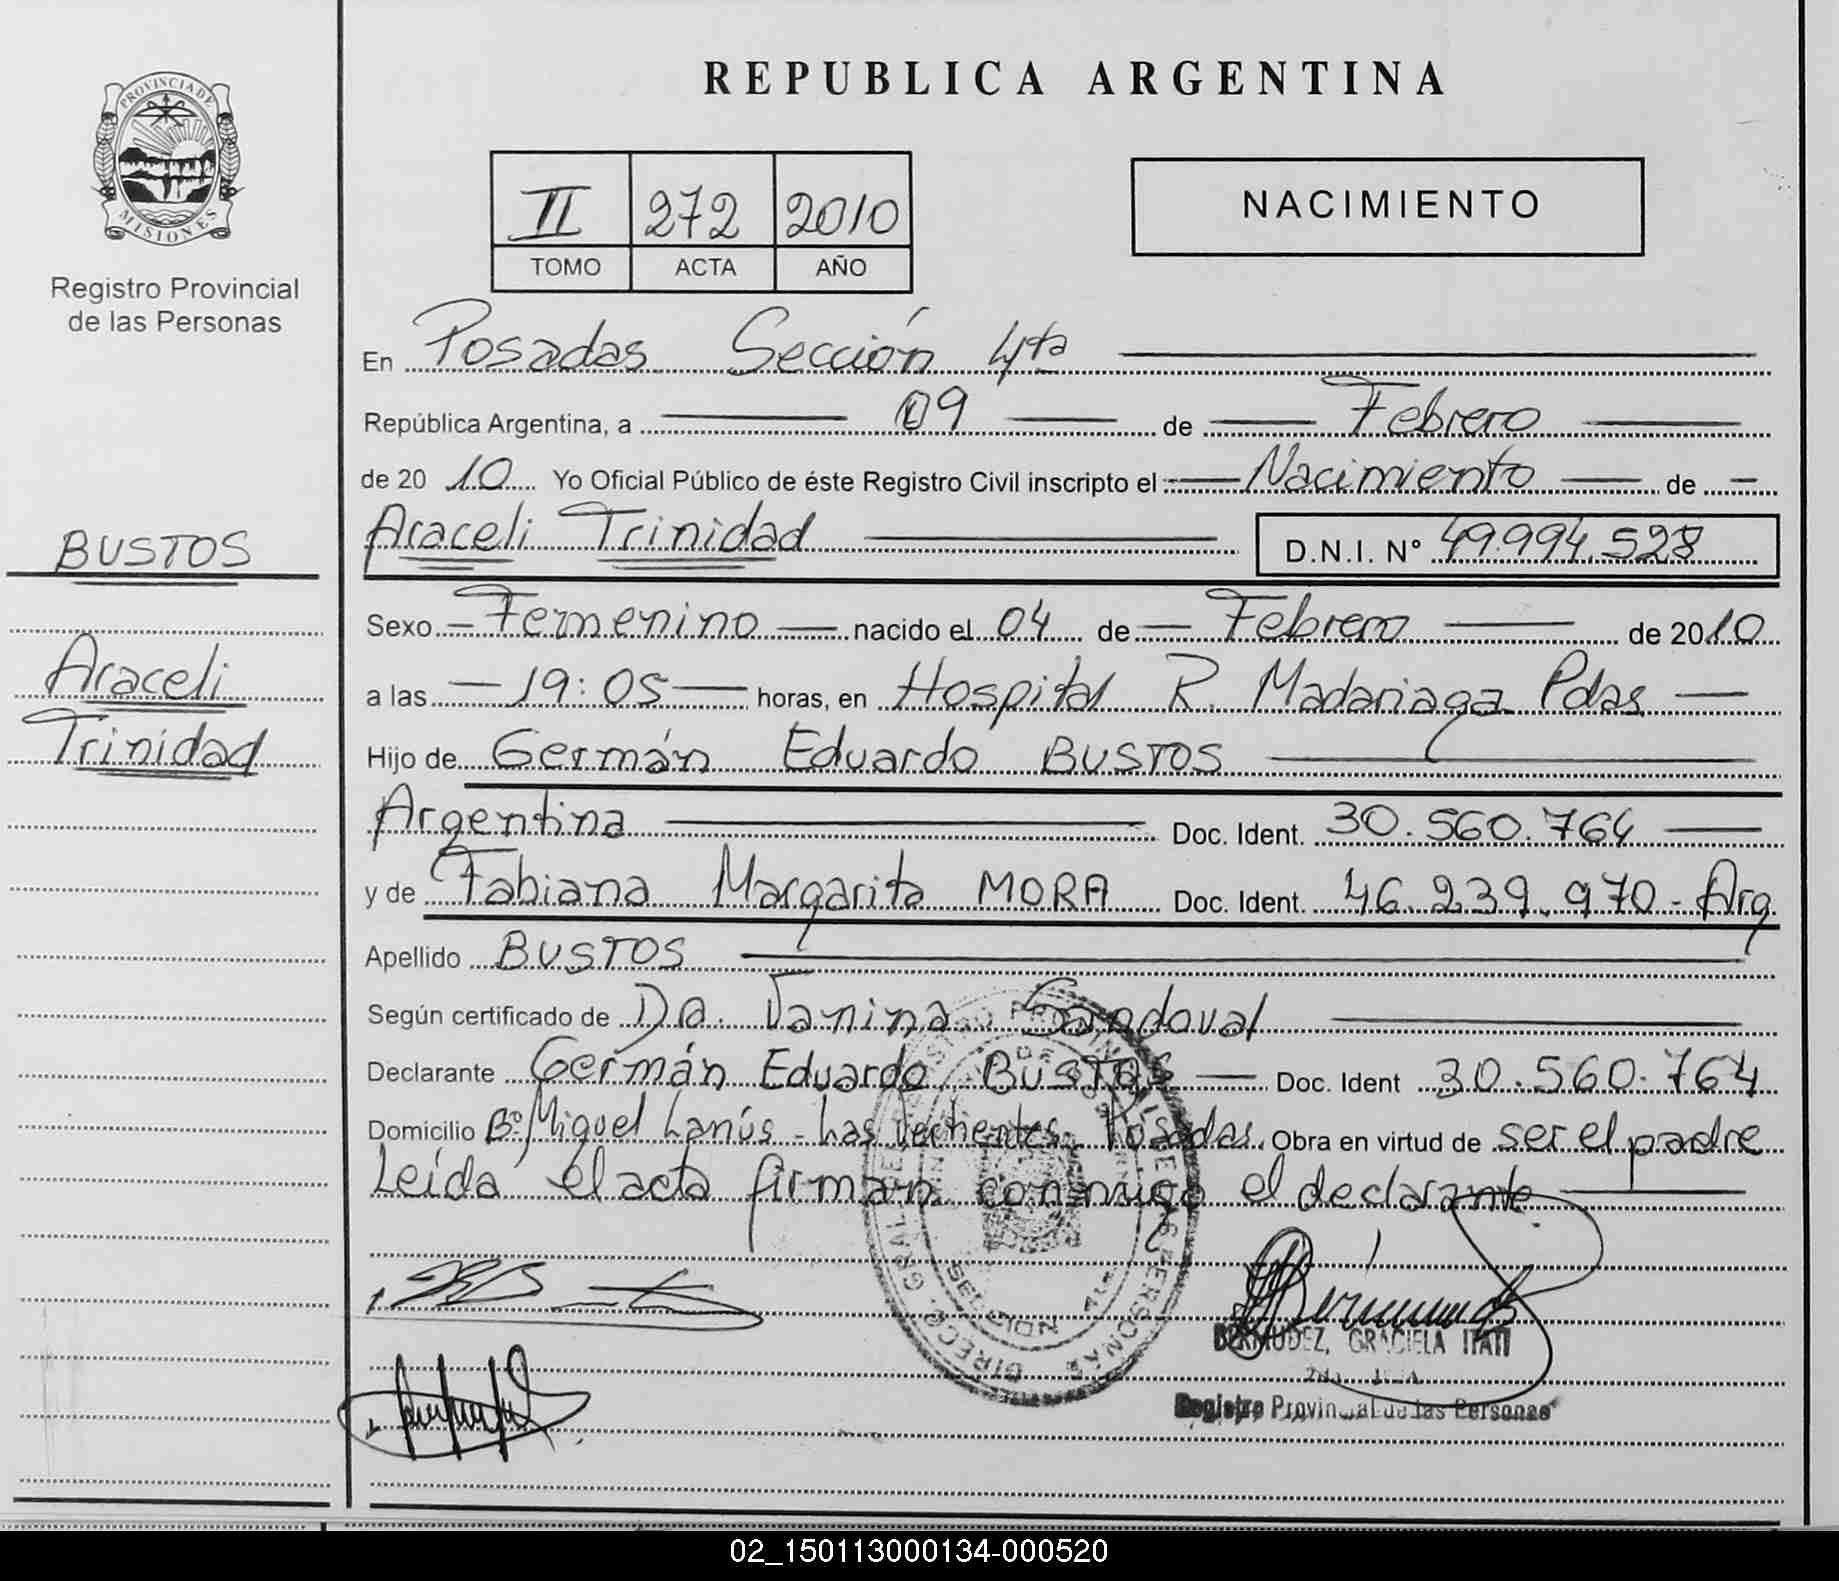 PROVINCIA DE
MISIONES
Registro Provincial
de las Personas
BUSTOS
Araceli
Trinidad
REPUBLICA ARGENTINA
II 272 2010
TOMO ACTA AÑO
NACIMIENTO
En Posadas Sección 4ta
República Argentina, a 09 de Febrero
de 2010 Yo Oficial Público de éste Registro Civil inscripto el Nacimiento de
Araceli Trinidad D.N.I. N° 49.994.528
Sexo Femenino nacido el 04 de Febrero de 2010
a las 19:05 horas, en Hospital R. Madariaga Pdas
Hijo de Germán Eduardo BUSTOS
Argentina Doc. Ident. 30.560.764
y de Fabiana Margarita MORA Doc. Ident. 46.239.970 - Arg.
Apellido BUSTOS
Según certificado de Dra. Vanina Sandoval
Declarante Germán Eduardo BUSTOS Doc. Ident 30.560.764
Domicilio B° Miguel Lanús - Las Vertientes. Posadas. Obra en virtud de ser el padre
Leída el acta firman conmigo el declarante
BERMUDEZ, GRACIELA ITATI
Registro Provincial de las Personas
02_150113000134-000520